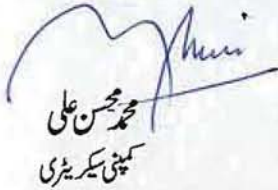 محمد محسن علی
کمپنی سیکریٹری